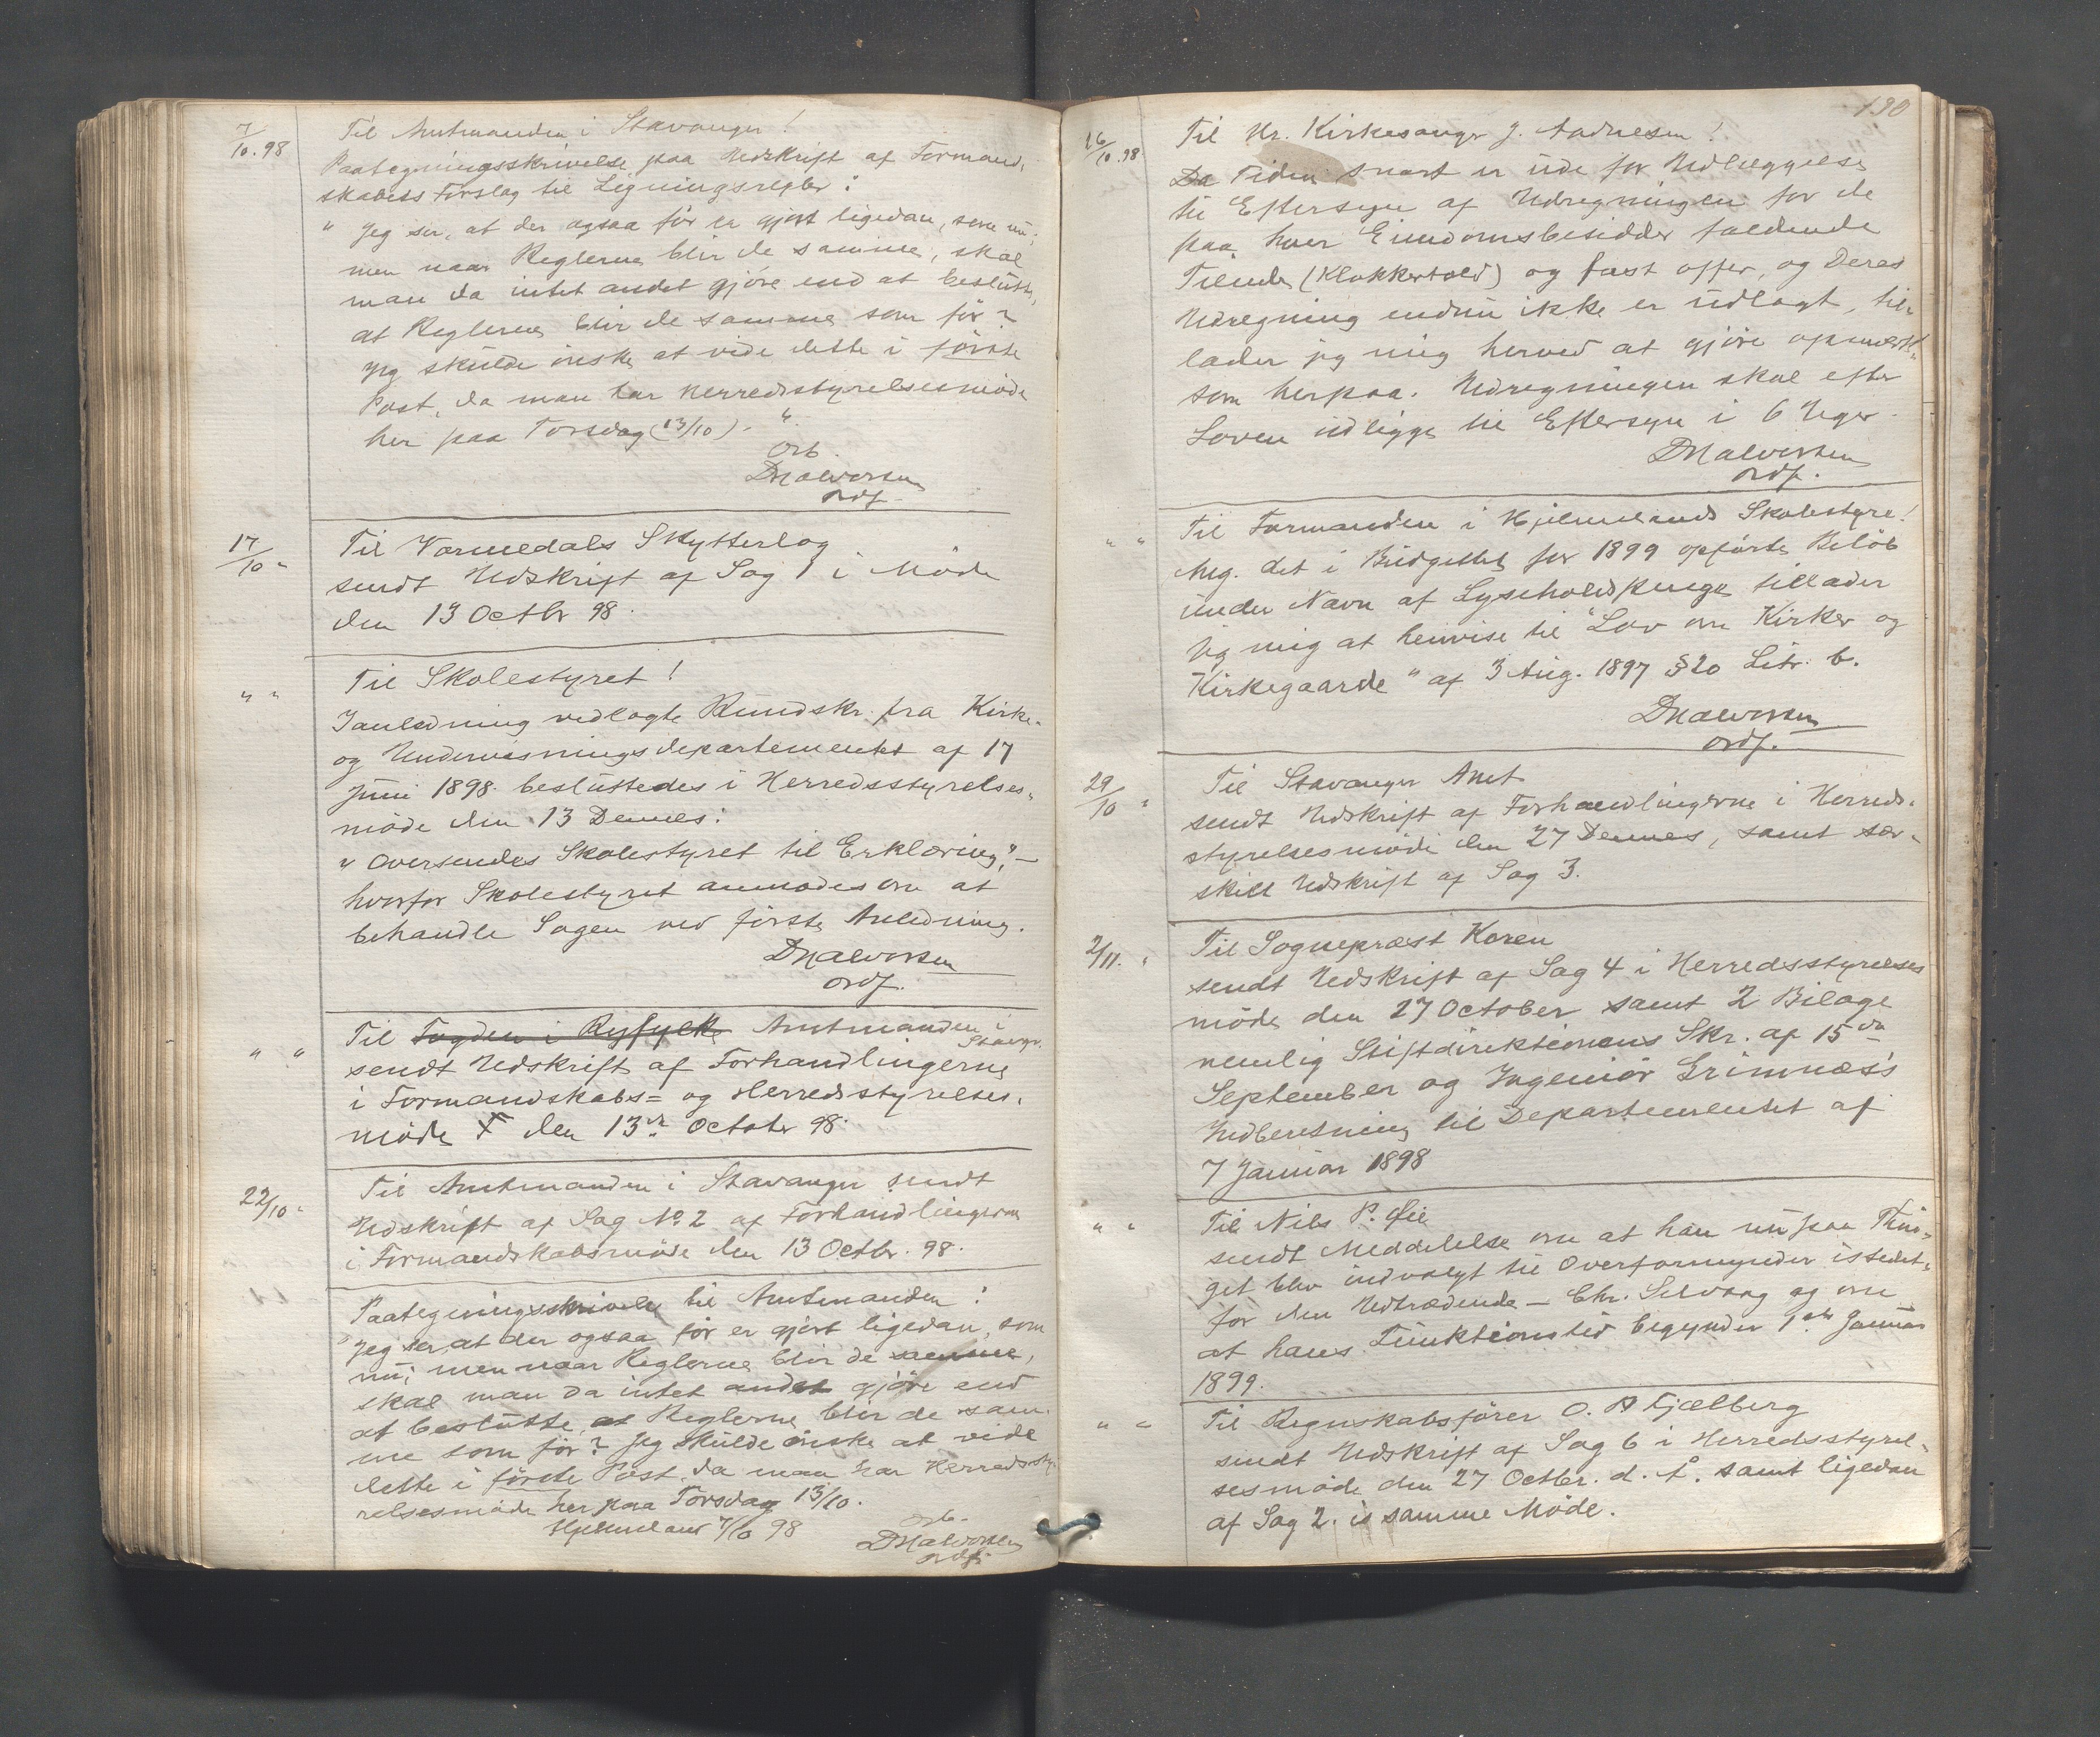 7/10.98
Til Amtmanden i Stavanger!
Paategningsskrivelse paa Udskrift af Formand-
skabets Forslag til Ligningsregler:
"Jeg ser, at der ogsaa før er gjort ligedan, som nu;
men naar Reglerne blir de samme, skal
man da intet andet gjøre end at beslutte,
at Reglerne blir de samme som før?
Jeg skulde ønske at vide dette i første
Post, da man har Herredsstyrelsesmøde
her paa Torsdag (13/10)."
Orb.
DHalvorsen
ordf.
17/10 "
Til Vormedals Skytterlag
sendt Udskrift af Sag 1 i Møde
den 13 Octbr 98.
" "
Til Skolestyret!
I anledning vedlagte Rundskr. fra Kirke-
og Undervisningsdepartementet af 17
Juni 1898 besluttedes i Herredsstyrelses-
møde den 13 Dennes:
"Oversendes Skolestyret til Erklæring", —
hvorfor Skolestyret anmodes om at
behandle Sagen ved første Anledning.
DHalvorsen
ordf.
" "
Til Fogden i Ryfylke Amtmanden i
Stavgr.
sendt Udskrift af Forhandlingerne
i Formandskabs= og Herredsstyrelses-
møde den 13de October 98.
22/10 "
Til Amtmanden i Stavanger sendt
Udskrift af Sag No 2 af Forhandlingerne
i Formandskabsmøde den 13 Octbr. 98.
Paategningsskrivelse til Amtmanden:
"Jeg ser, at der ogsaa før er gjort ligedan, som
nu; men naar Reglerne blir de samme,
skal man da intet andet gjøre end
at beslutte, at Reglerne blir de sam-
me som før? Jeg skulde ønske at vide
dette i første Post, da man har Herredssty-
relsesmøde her paa Torsdag 13/10.
Hjelmeland 7/10 98
Orb.
DHalvorsen
ordf.
190
26/10.98
Til Hr. Kirkesanger J. Aadnesen!
Da Tiden snart er ude for Udlæggelse
til Eftersyn af Udregningen for de
paa hver Eiendomsbesidder faldende
Tiende (Klokkertold) og fast offer, og Deres
Udregning endnu ikke er udlagt, til-
lader jeg mig herved at gjøre opmærk-
som herpaa. Udregningen skal efter
Loven udligge til Eftersyn i 6 Uger.
DHalvorsen
ordf.
" "
Til Formanden i Hjelmelands Skolestyre!
Ang. det i Budgettet for 1899 opførte Beløb
under Navn af Lyseholdspenge tillader
jeg mig at henvise til "Lov om Kirker og
Kirkegaarde" af 3 Aug. 1897 § 20 Litr. b.
DHalvorsen
ordf.
29/10 "
Til Stavanger Amt
sendt Udskrift af Forhandlingerne i Herreds-
styrelsesmøde den 27 Dennes, samt sær-
skilt Udskrift af Sag 3.
2/11. "
Til Sogneprest Koren
sendt Udskrift af Sag 4 i Herredsstyrelses
møde den 27 October samt 2 Bilage
nemlig Stiftdirektionens Skr. af 15de
September og Ingeniør Grimnæs's
Indberetning til Departementet af
7 Januar 1898
" "
Til Nils P.
sendt Meddelelse om at han nu paa Thin-
get blev indvalgt til Overformynder istedet-
for den Udtrædende — Chr. Selvaag og om
at hans Funktionstid begynder 1ste Januar
1899.
" "
Til Regnskabsfører O. Fjælberg
sendt Udskrift af Sag 6 i Herredsstyrel-
sesmøde den 27 Octbr. d. A. samt ligedan
af Sag 2. i samme Møde.